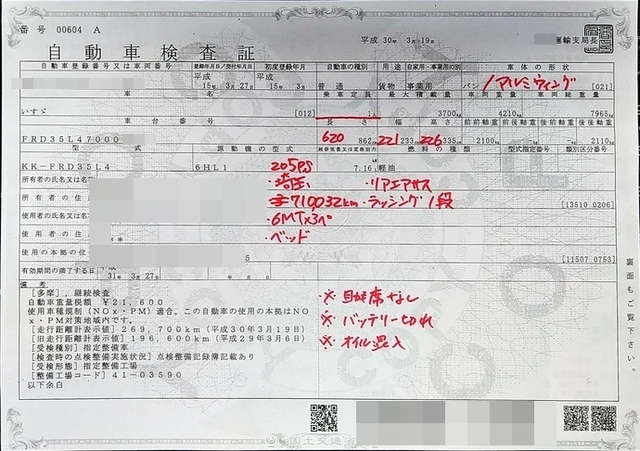 番号 00604 A
平成 30年 3月 19日
運輸支局長
自動車検査証
自動車登録番号又は車両番号 登録年月日/交付年月日 初度登録年月 自動車の種別 用途 自家用・事業用の別 車体の形状
平成 15年 3月 27日 平成 15年 3月 普通 貨物 事業用 バン /アルミウィング [021]
車名 乗車定員 最大積載量 車両重量 車両総重量
いすゞ [012] 1人 3700kg 4210kg 7965kg
車台番号 長さ 幅 高さ 前前軸重 前後軸重 後前軸重 後後軸重
FRD35L47000 620 862cm 221 233cm 226 335cm 2100kg -kg -kg 2110kg
型式 原動機の型式 総排気量又は定格出力 燃料の種類 型式指定番号 類別区分番号
KK-FRD35L4 6HL1 205PS 7.16L 軽油
所有者の氏名又は名称 ・リアエアサス
所有者の住所 710032km ・ラッシング1段 [13510 0206]
使用者の氏名又は名 ・6MT×3ペ
使用者の住所 ・ベッド
使用の本拠の位 5 [11507 0753]
有効期間の満了する日 31年 3月 27日
裏面もご覧下さい。
備考
[多摩],継続検査
自動車重量税額 ¥21,600
使用車種規制(NOx・PM)適合。この自動車の使用の本拠はNO
x・PM対策地域内です。
[走行距離計表示値] 269,700km(平成30年3月19日)
[旧走行距離計表示値] 196,600km(平成29年3月6日)
[受検種別] 指定整備車
[検査時の点検整備実施状況] 点検整備記録簿記載あり
[受検形態] 指定整備工場
[整備工場コード] 41-03590
以下余白
※ 助手席なし
※ バッテリー切れ
※ オイル混入
国土交通省